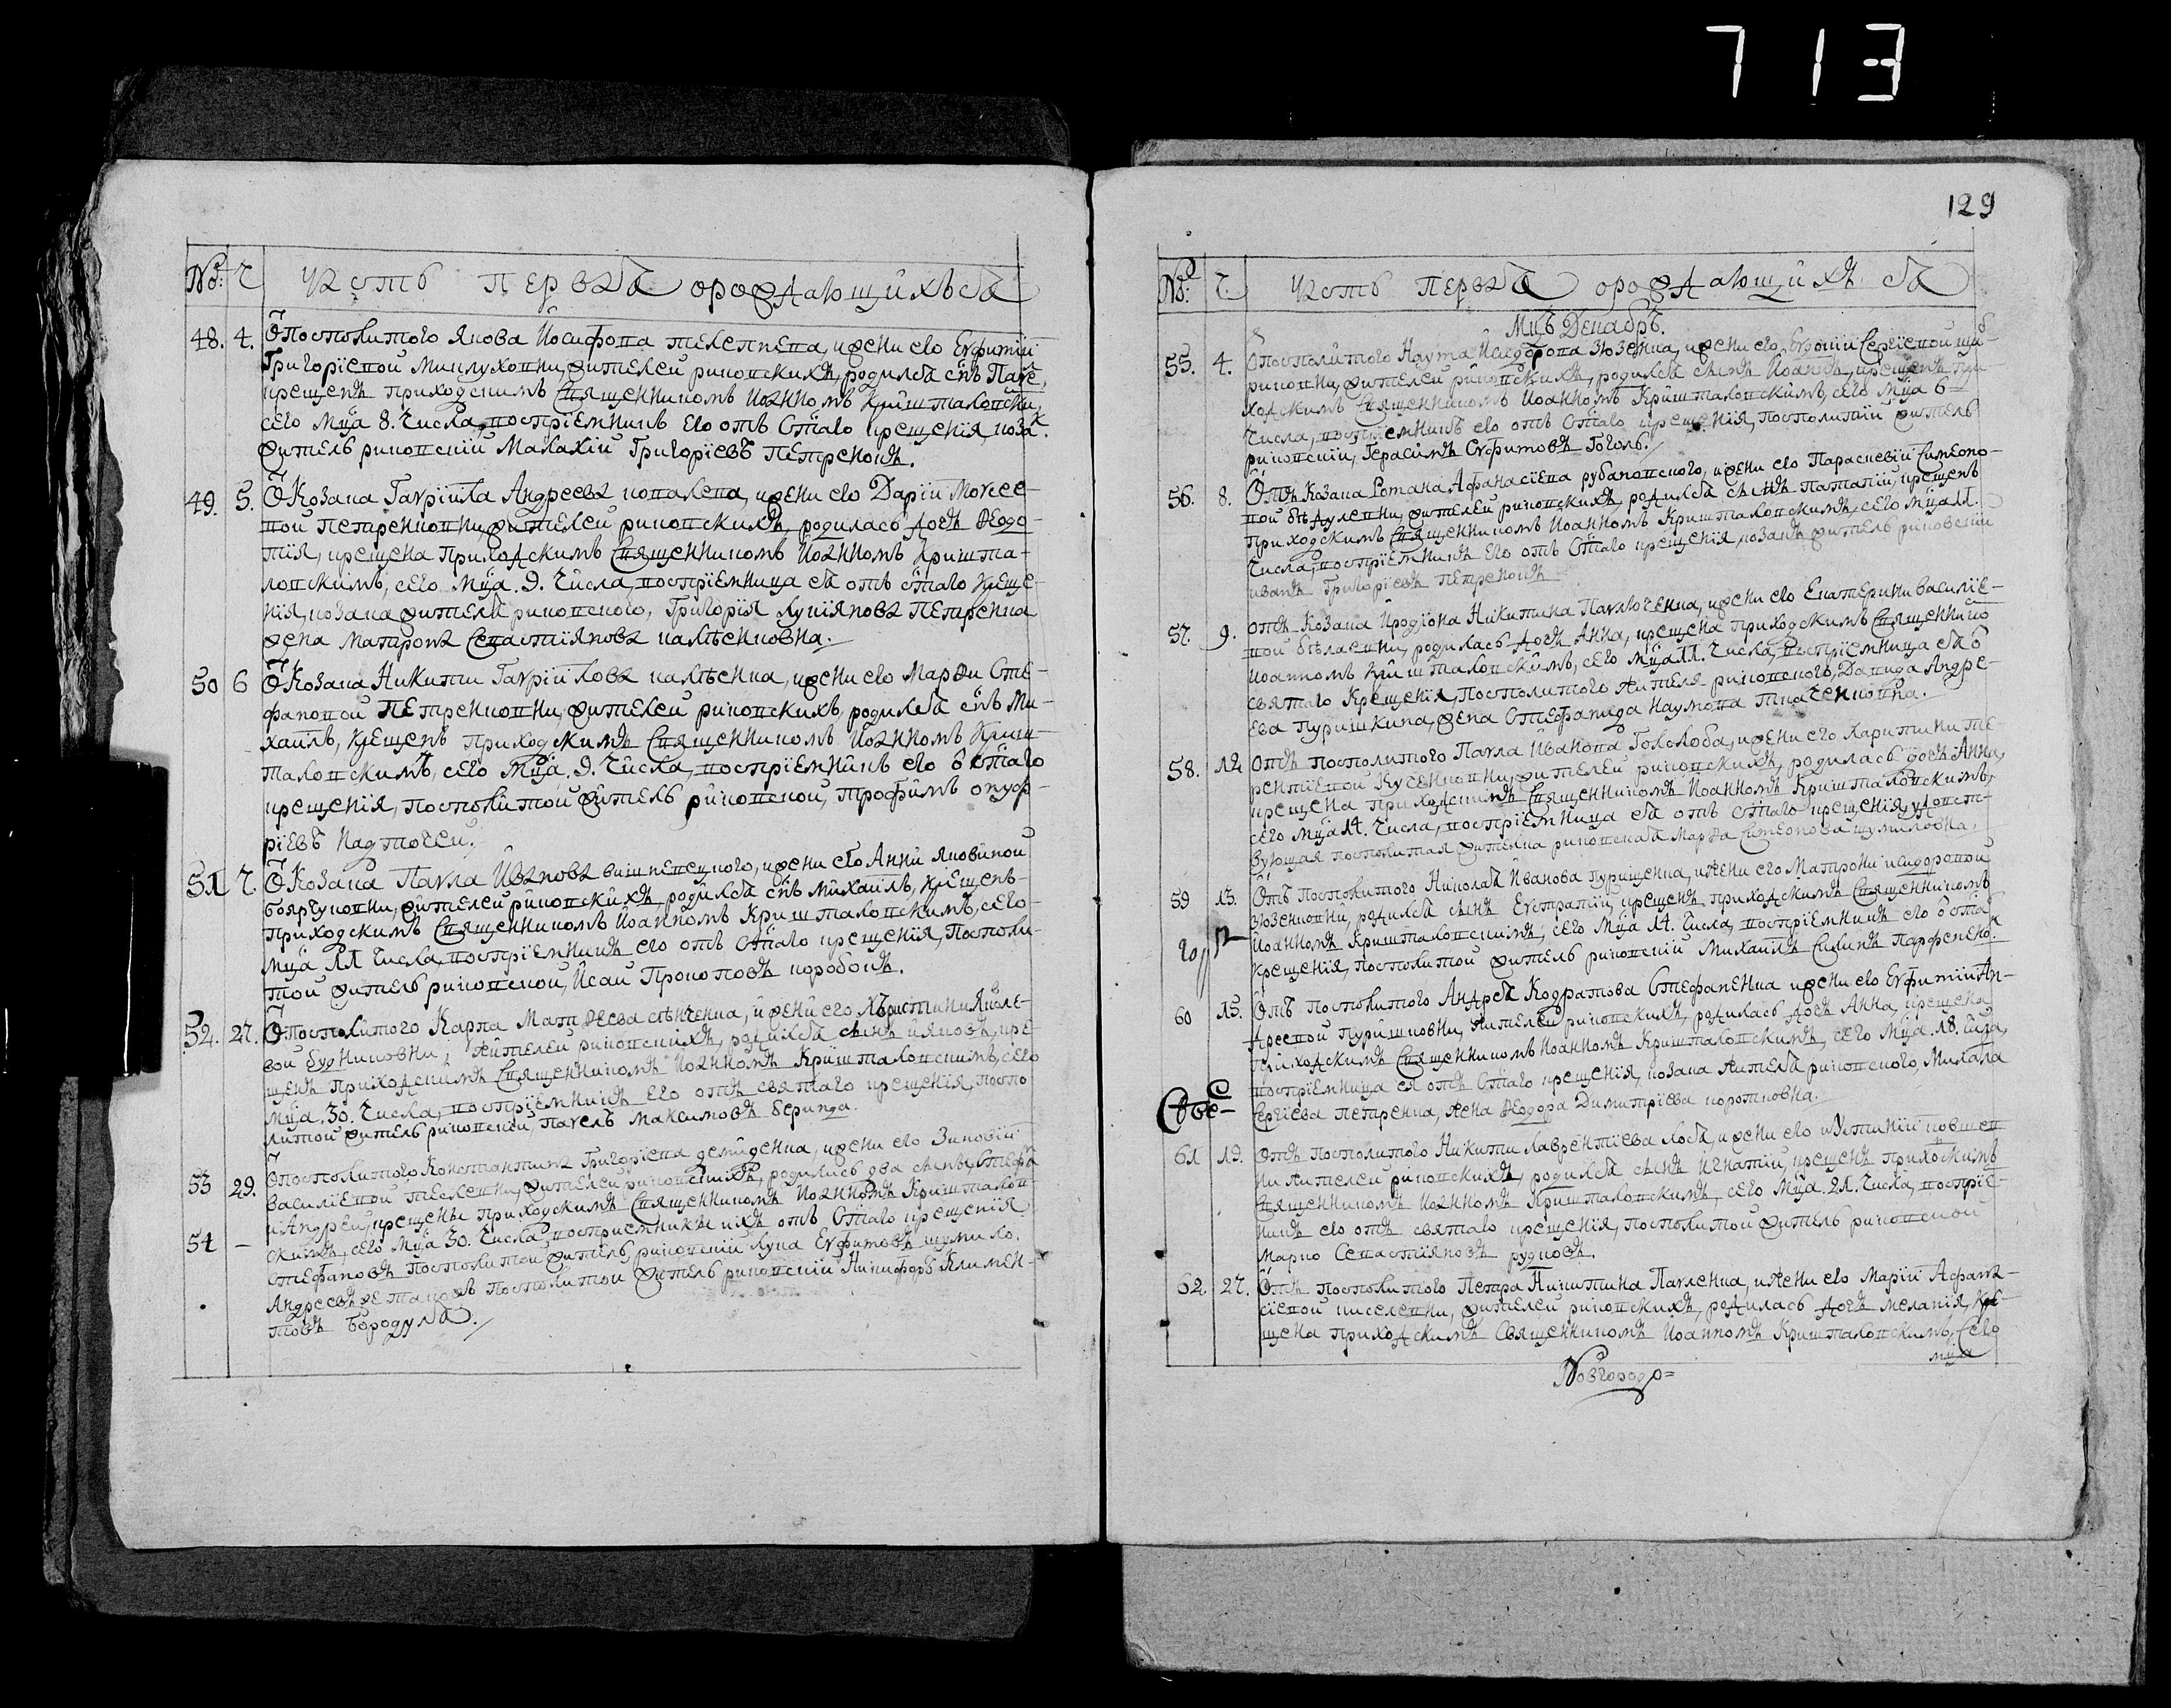 713
№: Ч Часть первая ораждающихъся
48. 4. Ѿ посполитого Якова Йосифова телепнева, ижени его Евфиміи
Григоріевой Миклуховни, жителей риковскихъ, родился снъ Паве,
крещенъ приходскимъ Священникомъ Иоанномъ Криштаповски,
сего Мца 8. Числа, воспріемникъ Его отъ Стаго крещенія, коза
житель риковскій Малахій Григоріевъ Петренокъ.
49. 5. Ѿ Козака Гавріила Андреева коналева, ижени его Даріи Моисее-
вой Петренковни, жителей риковскихъ, родилась дочъ Ѳеодо-
тія, крещена Приходскимъ Священникомъ Иоанномъ Кришта-
ловскимъ, сего Мца. 9. Числа, воспріемница ея отъ стаго креще-
нія, козака жителя риковского, Григорія Лукіянова Петренка
жена Матрона Севастіянова калѣсниковна.
50 6 Ѿ Козака Никити Гавріилова калѣсника, ижени его Марѳи Сте-
фановой Петренковни, жителей риковскихъ, родился снъ Ми-
хаилъ, крещенъ приходскимъ Священникомъ Иоанномъ Криш-
таловскимъ, сего Мца. 9. Числа, воспріемникъ его ѿ стаго
крещенія, посполитой житель риковской, трофимъ онуф-
ріевъ Надточей.
51 7. Ѿ Козака Павла Иванова вишневецкого, ижени его Анни Яковикой
бояргуковни, жителей риковскихъ родился снъ Михаилъ, крещенъ-
приходскимъ Священникомъ Иоанномъ Криштаповскимъ, сего-
Мца 11 Числа, воспріемникъ его отъ Стаго крещенія, Посполи-
той житель риковской, Исаи Прокоповъ коробокъ.
52. 27. Ѿ Посполитого Карпа Матѳеева сѣнченка, ижени его Христини Яковле-
вой будниковни, жителей риковскихъ, родился синъ Іяковъ, кре-
щенъ приходскимъ Священникомъ Иоанномъ Криштаповскимъ, сего
Мца. 30. Числа, воспріемникъ Его отъ святаго крещенія, поспо-
литой житель риковскій, павелъ Максимовъ беринда.
53 29. Ѿ посполитого Константина Григоріева демиденка, ижени его Зиновіи
Василіевой теслевни, жителей риковскихъ, родились два сини, Стефа
и Андрей, крещени приходскимъ Священникомъ Иоанномъ Криштапов-
54 - скимъ, сего Мца 30. Числа, воспріемники ихъ отъ Стаго крещенія
Стефановъ Посполитой житель риковскій Лука Евфимовъ шумило,
Андреевъ же такожъ Посполитой житель риковскій Никифоръ Климен-
товъ Бородуля.
129
№: Ч. Часть первая ораждающихъ ся
Мцъ Декабрь.
55. 4. Ѿ посполитого Наума Исидорова Зюзенка, ижени его, Евдокіи Сергіевой ща-
риковни, жителей риковскихъ, родился синъ Иоаннъ, крещенъ при-
ходскимъ Священникомъ Иоанномъ Криштаповскимъ, сего Мца 6
Числа, воспріемникъ его отъ Стаго крещенія, посполитій житель
риковскій, Герасимъ Евфимовъ Гоголь.
56. 8. Отъ Козака Романа Афанасіева рубановского, ижени его Параскевіи Симеоно-
вой бѣдулевни, жителей риковскихъ, родился синъ патапій, крещенъ
приходскимъ Священникомъ Иоанномъ Криштаповскимъ, сего Мца 11.
Числа, воспріемникъ Его отъ Стаго крещенія, козакъ житель риковскій
иванъ Григоріевъ петренокъ
57. 9. отъ Козака Иродіона Никитина Павлюченка, ижени его Екатерини василіе-
вой бѣлаевни, родилась дочъ Анна, крещена приходскимъ Священнико
иоанномъ Криштаповскимъ, сего Мца 11. Числа, воспріемница ея ѿ
святаго Крещенія, Посполитого жителя риковского, Данида Андре-
ева Пуришкина, жена Стефанида Наумова ткаченковна.
58. 12 отъ посполитого Павла Иванова Гололоба, ижени его Харитини те-
рентіевой Куценковни, жителей риковскихъ, родилась дочъ Анна,
крещена приходскимъ Священникомъ Иоанномъ Криштаповскимъ,
сего Мца 14. Числа, воспріемница ея отъ стаго крещенія, удовст-
вующая посполитая жителка риковская Марѳа Симеонова шумиловна,
59 13. Отъ Посполитого Николая Иванова пурищенка, ижени его Матрони исидоровой
Зюзенковни, родился синъ Евстратій, крещенъ приходскимъ Священникомъ
Иоанномъ Криштаповскимъ, сего Мца 14. Числа, воспріемникъ его ѿ ста
крещенія, посполитой житель риковскій Михаилъ Силинъ Парфенен.
60 15. Отъ посполитого Андрея Кодратова Стефаненка ижени его Евфиміи Ан-
дреевой Пуришковни, жителей риковскихъ, родилась дочъ Анна, крещена
приходскимъ Священникомъ Иоанномъ Криштаповскимъ, сего Мца 18. Числа,
воспріемница ея отъ Стаго крещенія, козака жителя риковского, Михаила
Сергіева петренка, жена Ѳеодора Димитріева коротковна.
61 19. Отъ посполитого Никити лаврентіева лобя, ижени его Иустиніи ковшев
ни жителей риковскихъ, родился синъ Игнатій, крещенъ приходскимъ
Священникомъ Иоанномъ Криштаповскимъ, сего Мца. 21. Числа, воспріе-
никъ его отъ святаго крещенія, посполитой житель риковской
Марко Севастіяновъ рудковъ.
62. 27. Отъ посполитого Петра Никитина Павленка, ижени его Маріи Афана-
сіевой киселевни, жителей риковскихъ, родилась дочъ меланія, кре-
щена приходскимъ Священникомъ Иоанномъ Криштаповскимъ, Сего
мца
Новгородо=